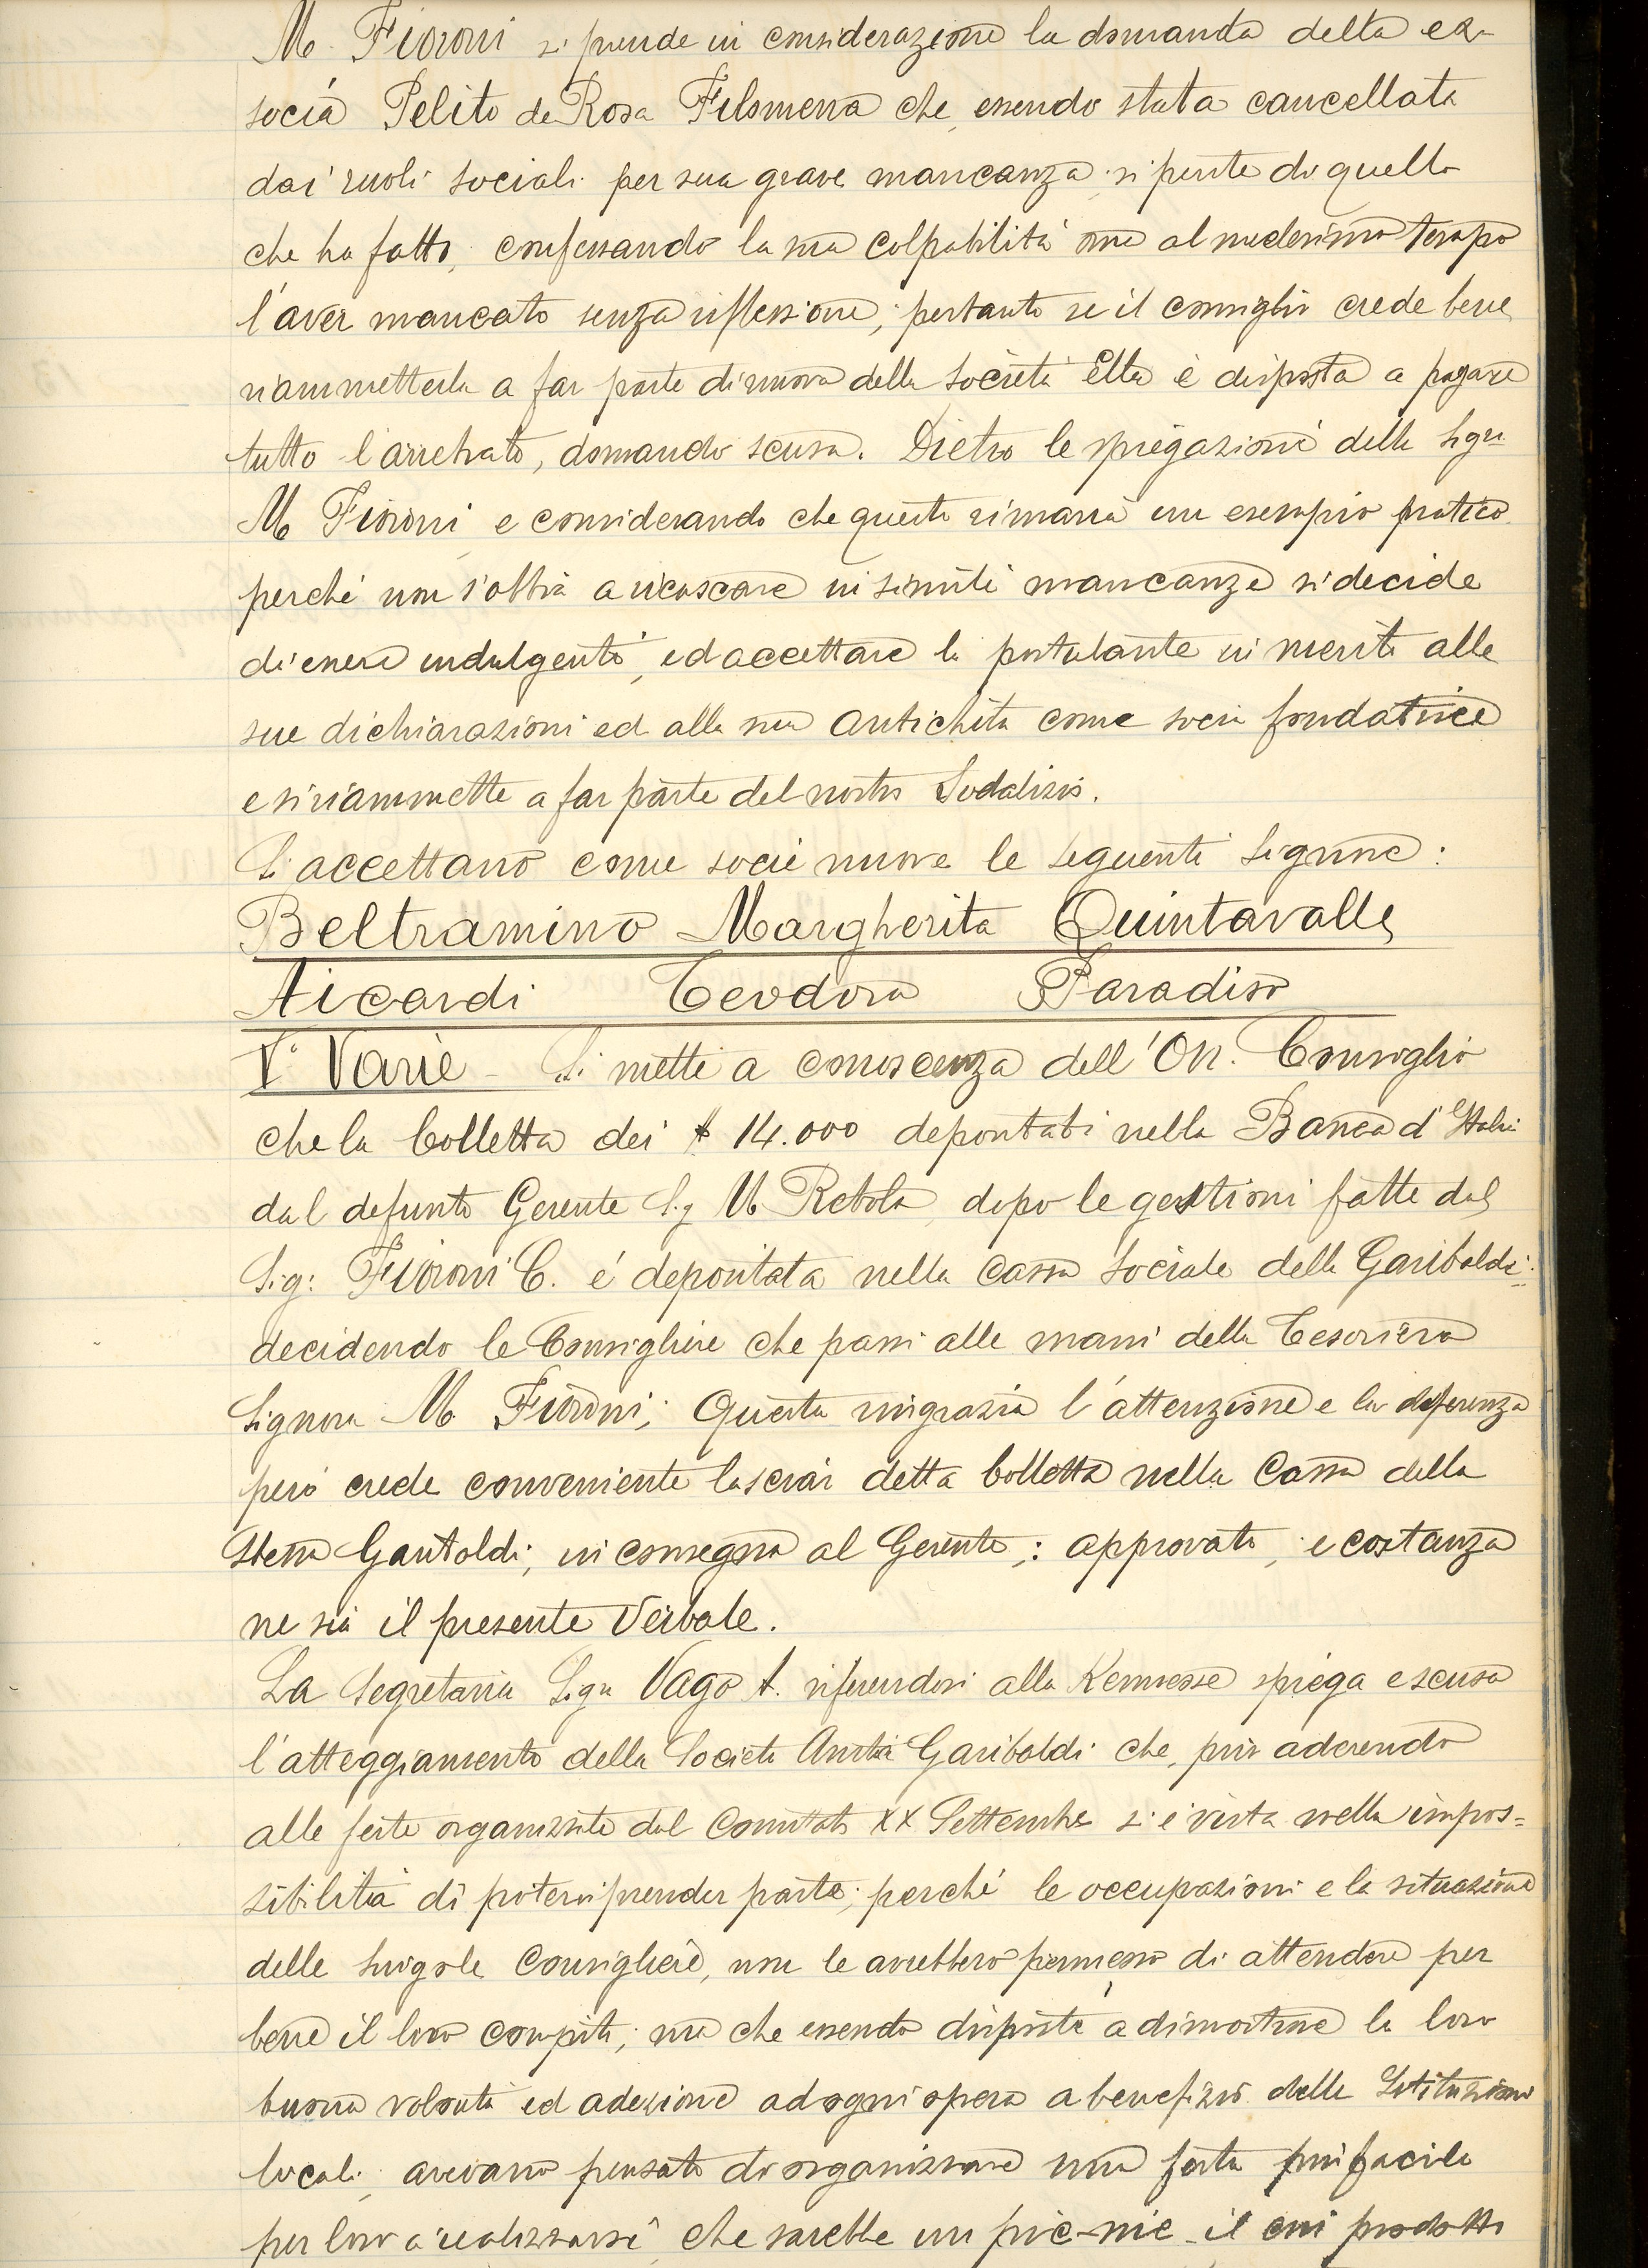 M. Fioroni si prende in considerazione la domanda della ex-
socia Pelito de Rosa Filomena che, essendo stata cancellata
dai ruoli sociali per sua grave mancanza si pente di quello
che ha fatto, confessando la sua colpabilità ma al medesimo tempo
l'aver mancato senza riflessione; pertanto se il consiglio crede bene
riammetterla a far parte di nuovo della Società Ella è disposta a pagare
tutto l'arretrato, domando scusa. Dietro le spiegazioni della Sigra
M Fioroni e considerando che questo rimarrà un esempio pratico
perché non s'abbia a ricascare in simili mancanze si decide
di essere indulgenti, ed accettare la postulante in merito alle
sue dichiarazioni ed alla sua antichità come socia fondatrice
e si riammette a far parte del nostro Sodalizio.
Si accettano come socie nuove le seguenti Signore:
Beltramino Margherita Quintavalle
Aicardi Teodora Paradiso
V° Varie - Si mette a conoscenza dell'On. Consiglio
che la bolletta dei $ 14.000 depositati nella Banca d'Italia
dal defunto Gerente Sig M Rebola, dopo le gestioni fatte dal
Sig: Fioroni C. é depositata nella Cassa Sociale della Garibaldi:
decidendo le Consigliere che passi alle mani della Tesoriera
Signora M. Fioroni; Questa ringrazia l'attenzione e la deferenza
però crede conveniente lasciar detta bolletta nella Cassa della
stessa Garibaldi; in consegna al Gerente,: approvato, e costanza
ne sia il presente Verbale.
La Segretaria Sigra Vago A. riferendosi alla Kermesse spiega e scusa
l'atteggiamento della Società Anita Garibaldi che, pur aderendo
alle feste organizzate dal Comitato XX Settembre si è vista nella impos=
sibilità di potervi prender parte; perché le occupazioni e la situazione
delle singole Consigliere, non le avrebbero permesso di attendere per
bene il loro compito; ma che essendo disposte a dimostrare la loro
buona volontà ed adezione ad ogni opera a benefizio delle Istituzioni
locali, avevano pensato di organizzare una festa più facile
per loro a realizzarsi che sarebbe un pic-nic il cui prodotto